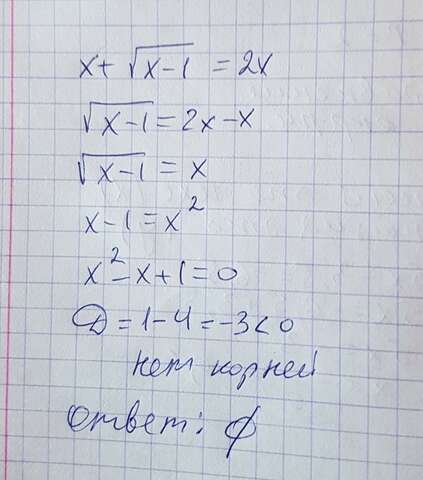 x + √(x-1) = 2x
√(x-1) = 2x-x
√(x-1) = x
x-1 = x²
x²-x+1 = 0
D = 1-4 = -3 < 0
нет корней
Ответ: ∅